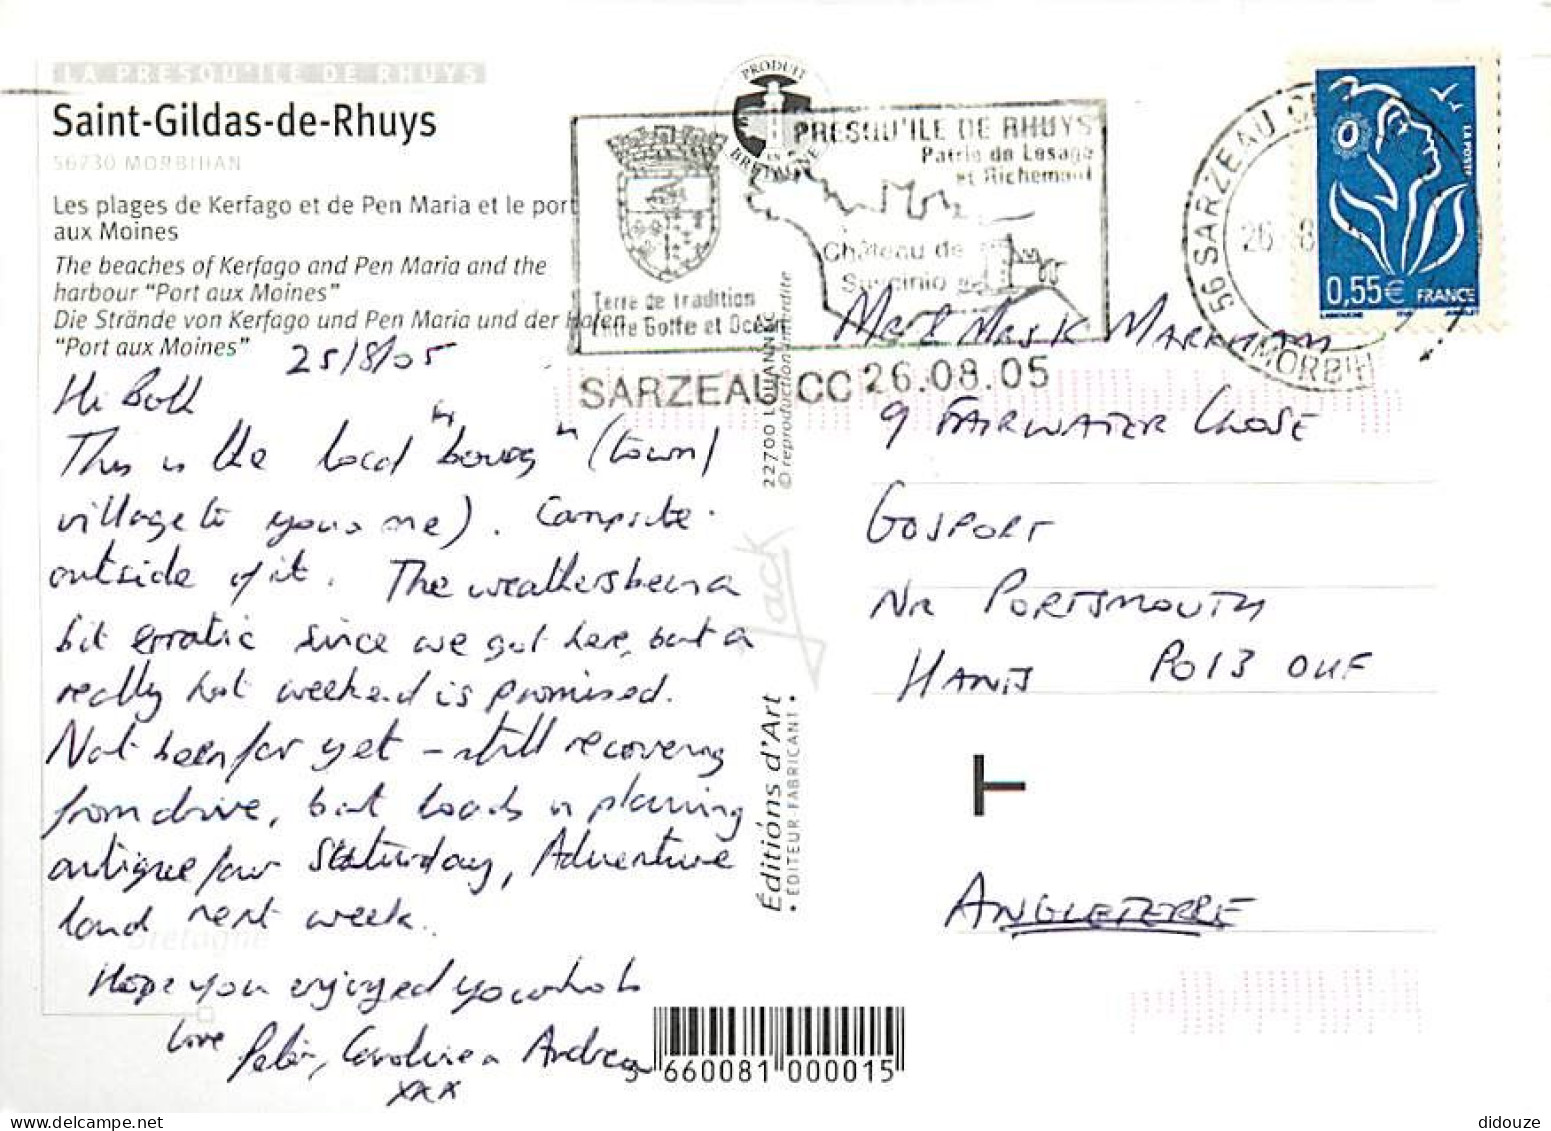 LA PRESQU'ILE DE RHUYS
Saint-Gildas-de-Rhuys
56730 MORBIHAN
Les plages de Kerfago et de Pen Maria et le port
aux Moines
The beaches of Kerfago and Pen Maria and the
harbour "Port aux Moines"
Die Strände von Kerfago und Pen Maria und der Hafen
"Port aux Moines"
25/8/05
Hi Both
This is the local "bourg" (town/
village to you & me). Campsite
outside of it. The weathers been a
bit erratic since we got here, but a
really hot weekend is promised.
Not been far yet - still recovering
from drive, but loads in planning
antique fair Saturday, Adventure
land next week.
Bretagne
Hope you enjoyed your hols
Love Peter, Caroline & Andrew
xxx
PRODUIT
EN
BRETAGNE
PRESQU'ILE DE RHUYS
Patrie de Lesage
et Richemont
Château de
Suscinio
Terre de tradition
Entre Golfe et Océan
SARZEAU CC 26.08.05
56 SARZEAU CC
26 8
MORBIH
LA POSTE
0,55€ FRANCE
LAMOUCHE
22700 LOUANNEC
© reproduction interdite
Jack
Éditions d'Art
• ÉDITEUR FABRICANT •
Mr & Mrs K Markham
9 Fairwater Close
Gosport
Nr Portsmouth
Hants PO13 0UF
Angleterre
3 660081 000015
didouze